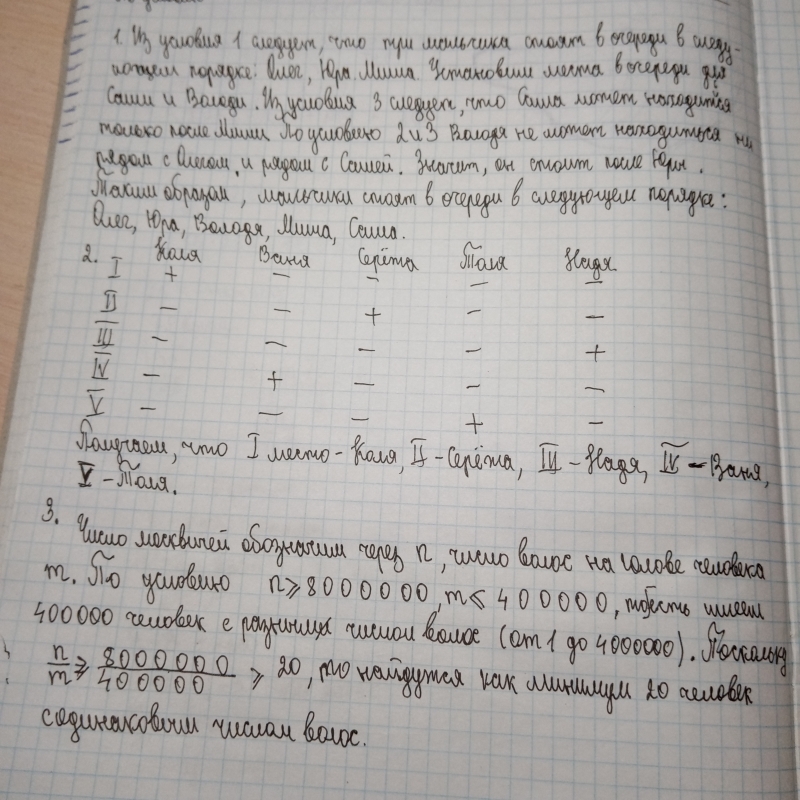 1. Из условия 1 следует, что три мальчика стоят в очереди в следу-
ющем порядке: Олег, Юра, Миша. Установим места в очереди для
Саши и Володи. Из условия 3 следует, что Саша может находиться
только после Миши. По условию 2 и 3 Володя не может находиться ни
рядом с Олегом, и рядом с Сашей. Значит, он стоит после Юры.
Таким образом, мальчики стоят в очереди в следующем порядке:
Олег, Юра, Володя, Миша, Саша.
2. Коля Ваня Серёжа Толя Надя
I + - - - -
II - - + - -
III - - - - +
IV - + - - -
V - - - + -
Получаем, что I место - Коля, II - Серёжа, III - Надя, IV - Ваня,
V - Толя.
3. Число москвичей обозначим через n, число волос на голове человека
m. По условию n ⩾ 8000000, m ⩽ 400000, тоесть имеем
400000 человек с разными числом волос (от 1 до 4000000). Поскольку
n/m ⩾ 8000000/400000 ⩾ 20, то найдутся как минимум 20 человек
с одинаковым числом волос.